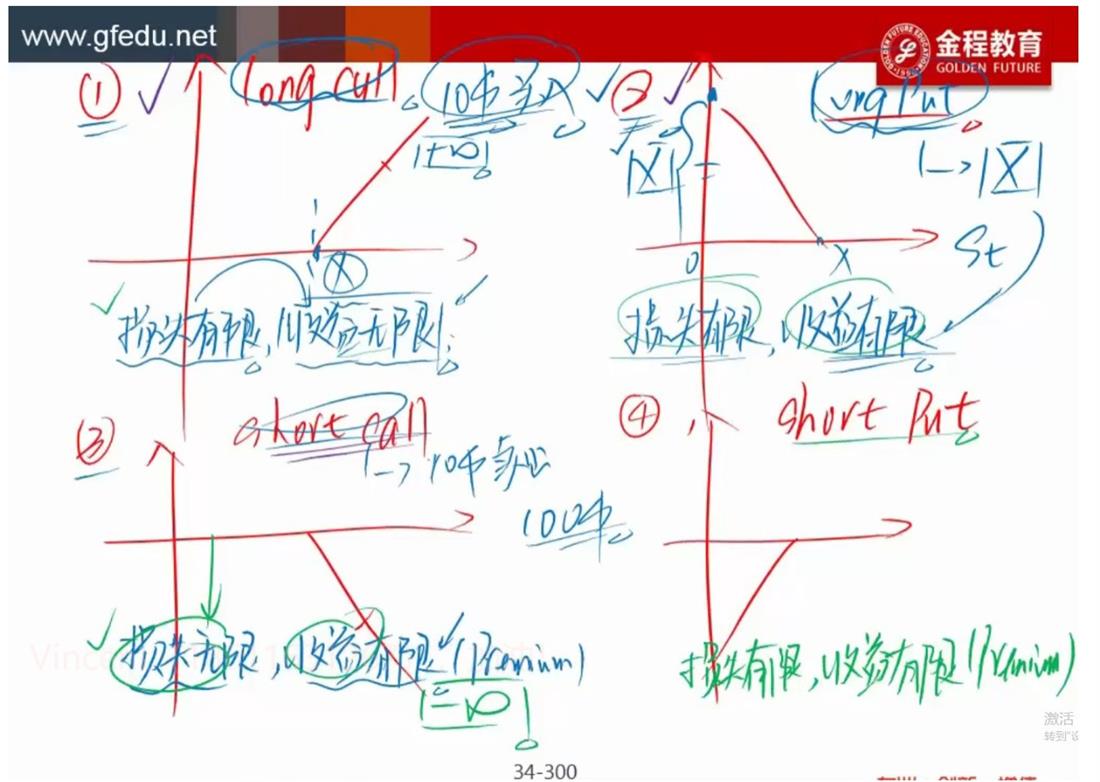 www.gfedu.net
金程教育
GOLDEN FUTURE
① long call 10块买入
|+∞|
X
损失有限,收益无限;
② long Put
|X| → |X|
0 X St
损失有限,收益有限
③ short call
→ 10块卖出
100块
损失无限,收益有限 (Premium)
|-∞|
④ short Put
损失有限,收益有限 (Premium)
Vince
激活
转到"设
34-300